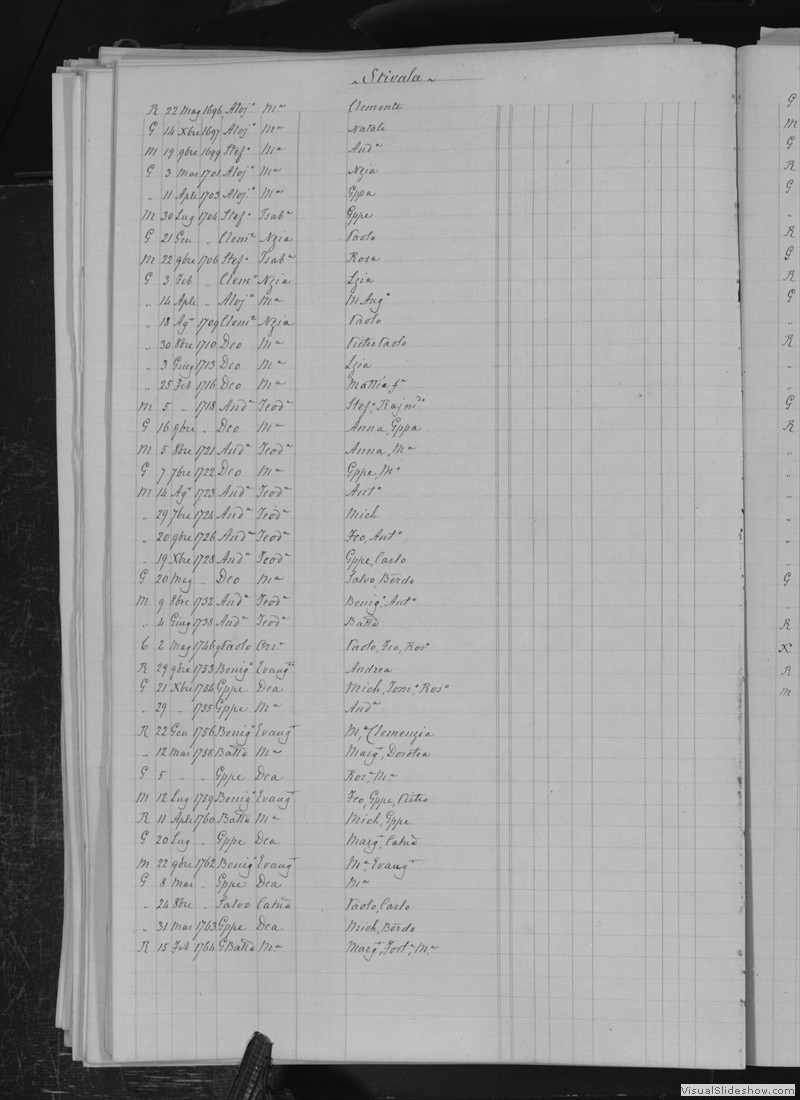 Stivala
R 22 Mag 1696 Aloj.º M.ª Clemente
G 14 Xbre 1697 Aloj.º M.ª Natale
M 19 9bre 1699 Stef.º M.ª And.ª
G 3 Mar 1701 Aloj.º M.ª Nzia
" 11 Aple 1703 Aloj.º M.ª Gppa
M 30 Lug 1704 Stef.º Isab.ª Gppe
G 21 Gen " Clem.e Nzia Paolo
M 22 9bre 1706 Stef.º Isab.ª Rosa
G 3 Feb " Clem.e Nzia Lzia
" 14 Aple " Aloj.º M.ª M Ang.ª
" 18 Ag.º 1709 Clem.e Nzia Paolo
" 30 8bre 1710 Deo M.ª Pietro Paolo
" 3 Giug 1713 Deo M.ª Lzia
" 25 Feb 1716 Deo M.ª Mattia, f.ª
M 5 " 1718 And.ª Teod.ª Stef.º, Rajm.do
G 16 9bre " Deo M.ª Anna, Gppa
M 5 8bre 1721 And.ª Teod.ª Anna, M.ª
G 7 7bre 1722 Deo M.ª Gppe, M.ª
M 14 Ag.º 1723 And.ª Teod.ª Ant.º
" 29 7bre 1724 And.ª Teod.ª Mich
" 20 9bre 1726 And.ª Teod.ª Fco, Ant.º
" 19 Xbre 1728 And.ª Teod.ª Gppe, Carlo
G 20 Mag " Deo M.ª Salvo, Bērdo
M 9 8bre 1732 And.ª Teod.ª Benig.º, Ant.º
" 4 Giug 1738 And.ª Teod.ª Batta
6 2 Mag 1746 Paolo Ors.ª Paolo, Fco, Ros.º
R 29 9bre 1753 Benig.º Evang.ta Andrea
G 21 Xbre 1754 Gppe Dea Mich, Tom.º, Ros.º
" 29 " 1755 Gppe M.ª And.ª
R 22 Gen 1756 Benig.º Evang.ta M.ª, Clemenzia
" 12 Mar 1758 Batta M.ª Marg.ta, Dorotea
G 5 " " Gppe Dea Ros.ª, M.ª
M 12 Lug 1759 Benig.º Evang.ta Fco, Gppe, Pietro
R 11 Aple 1760 Batta M.ª Mich, Gppe
G 20 Lug " Gppe Dea Marg.ta, Catna
M 22 9bre 1762 Benig.º Evang.ta M.ª, Evang.ta
G 8 Mar " Gppe Dea M.ª
" 24 8bre " Salvo Catna Paolo, Carlo
" 31 Mar 1763 Gppe Dea Mich, Bērdo
R 15 Feb 1764 G Batta M.ª Marg.ta, Fort.ª, M.ª
G
M
G
R
G
"
R
G
R
G
"
R
"
"
G
R
"
"
"
"
"
"
G
"
R
X
R
M
VisualSlideshow.com